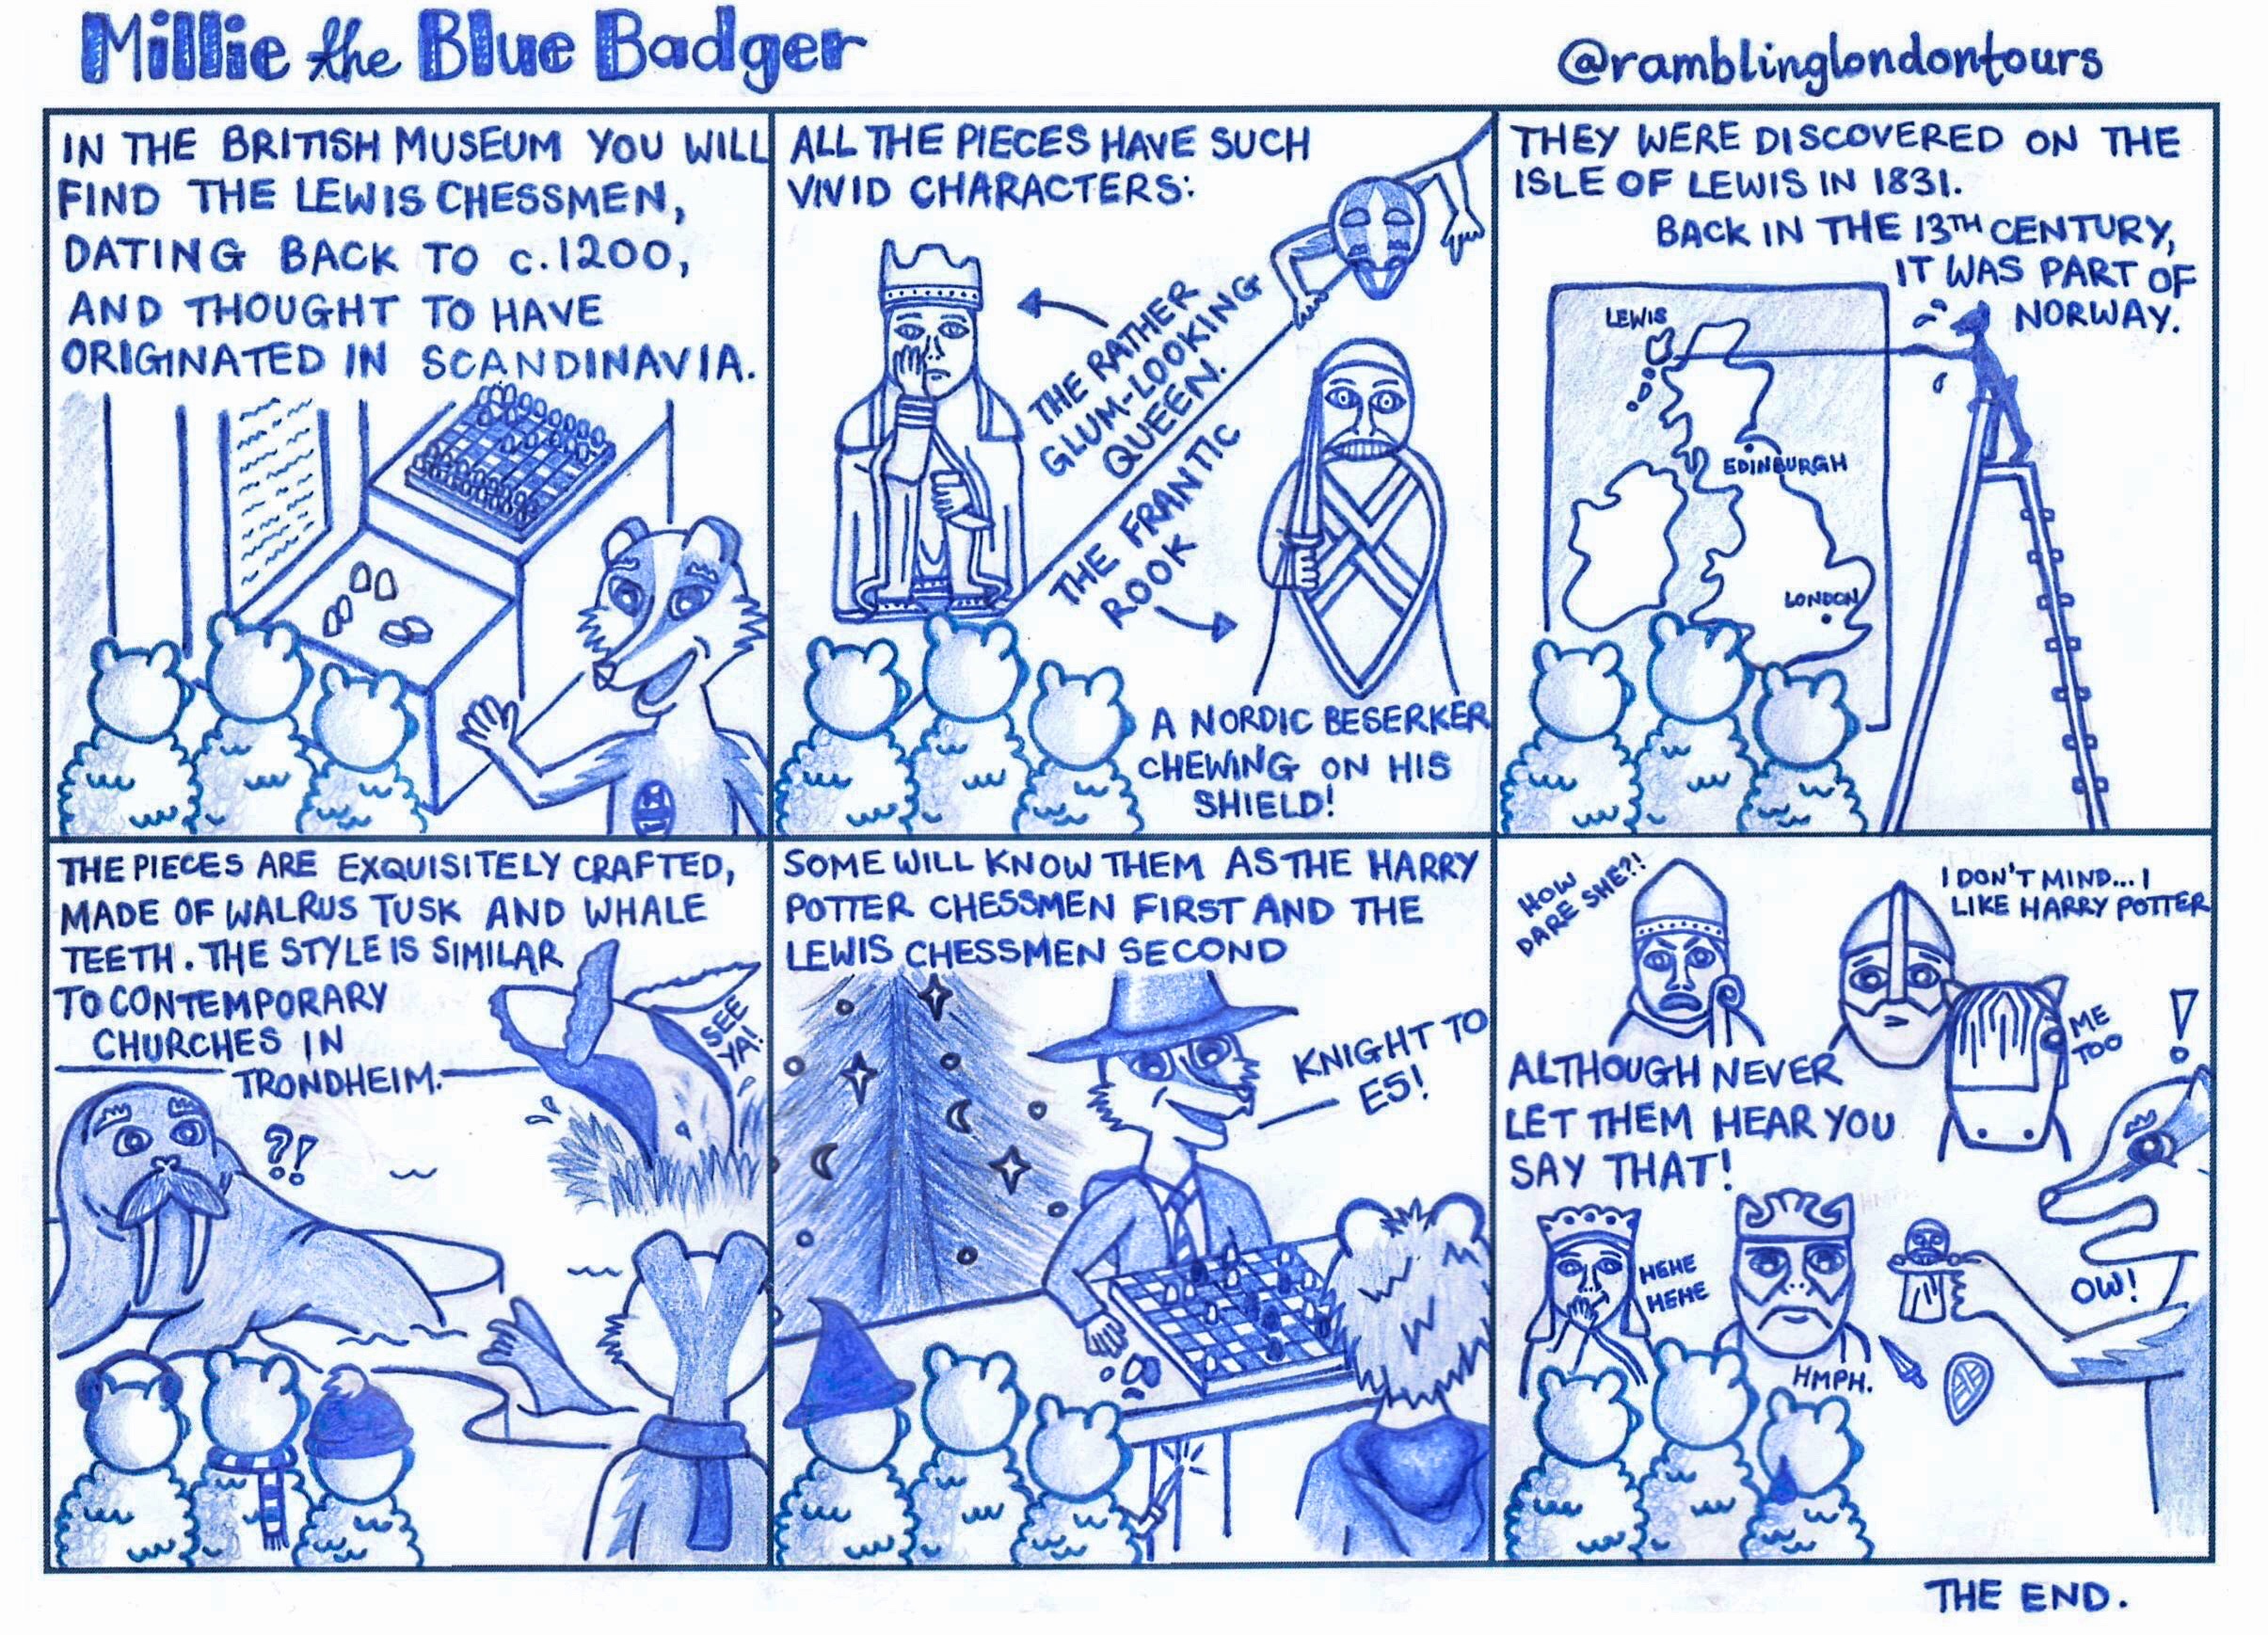 Millie the Blue Badger
@ramblinglondontours
IN THE BRITISH MUSEUM YOU WILL
FIND THE LEWIS CHESSMEN,
DATING BACK TO c.1200,
AND THOUGHT TO HAVE
ORIGINATED IN SCANDINAVIA.
ALL THE PIECES HAVE SUCH
VIVID CHARACTERS:
THE RATHER
GLUM-LOOKING
QUEEN.
THE FRANTIC
ROOK
A NORDIC BESERKER
CHEWING ON HIS
SHIELD!
THEY WERE DISCOVERED ON THE
ISLE OF LEWIS IN 1831.
BACK IN THE 13TH CENTURY,
IT WAS PART OF
NORWAY.
LEWIS
EDINBURGH
LONDON
THE PIECES ARE EXQUISITELY CRAFTED,
MADE OF WALRUS TUSK AND WHALE
TEETH. THE STYLE IS SIMILAR
TO CONTEMPORARY
CHURCHES IN
TRONDHEIM.
SEE
YA!
?!
SOME WILL KNOW THEM AS THE HARRY
POTTER CHESSMEN FIRST AND THE
LEWIS CHESSMEN SECOND
KNIGHT TO
E5!
HOW
DARE SHE?!
I DON'T MIND... I
LIKE HARRY POTTER
ME
TOO
!
ALTHOUGH NEVER
LET THEM HEAR YOU
SAY THAT!
HEHE
HEHE
HMPH.
OW!
THE END.